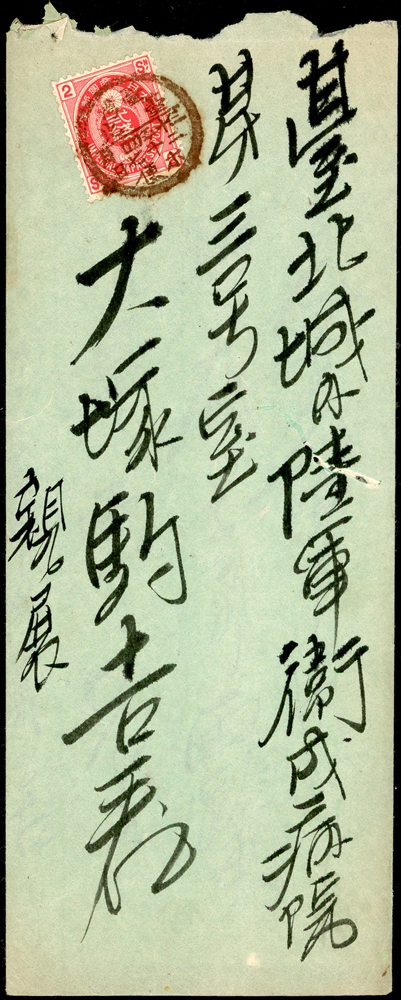 臺北城内陸軍衛戍病院
第三号室
大塚駒吉君
親展
2 Sn